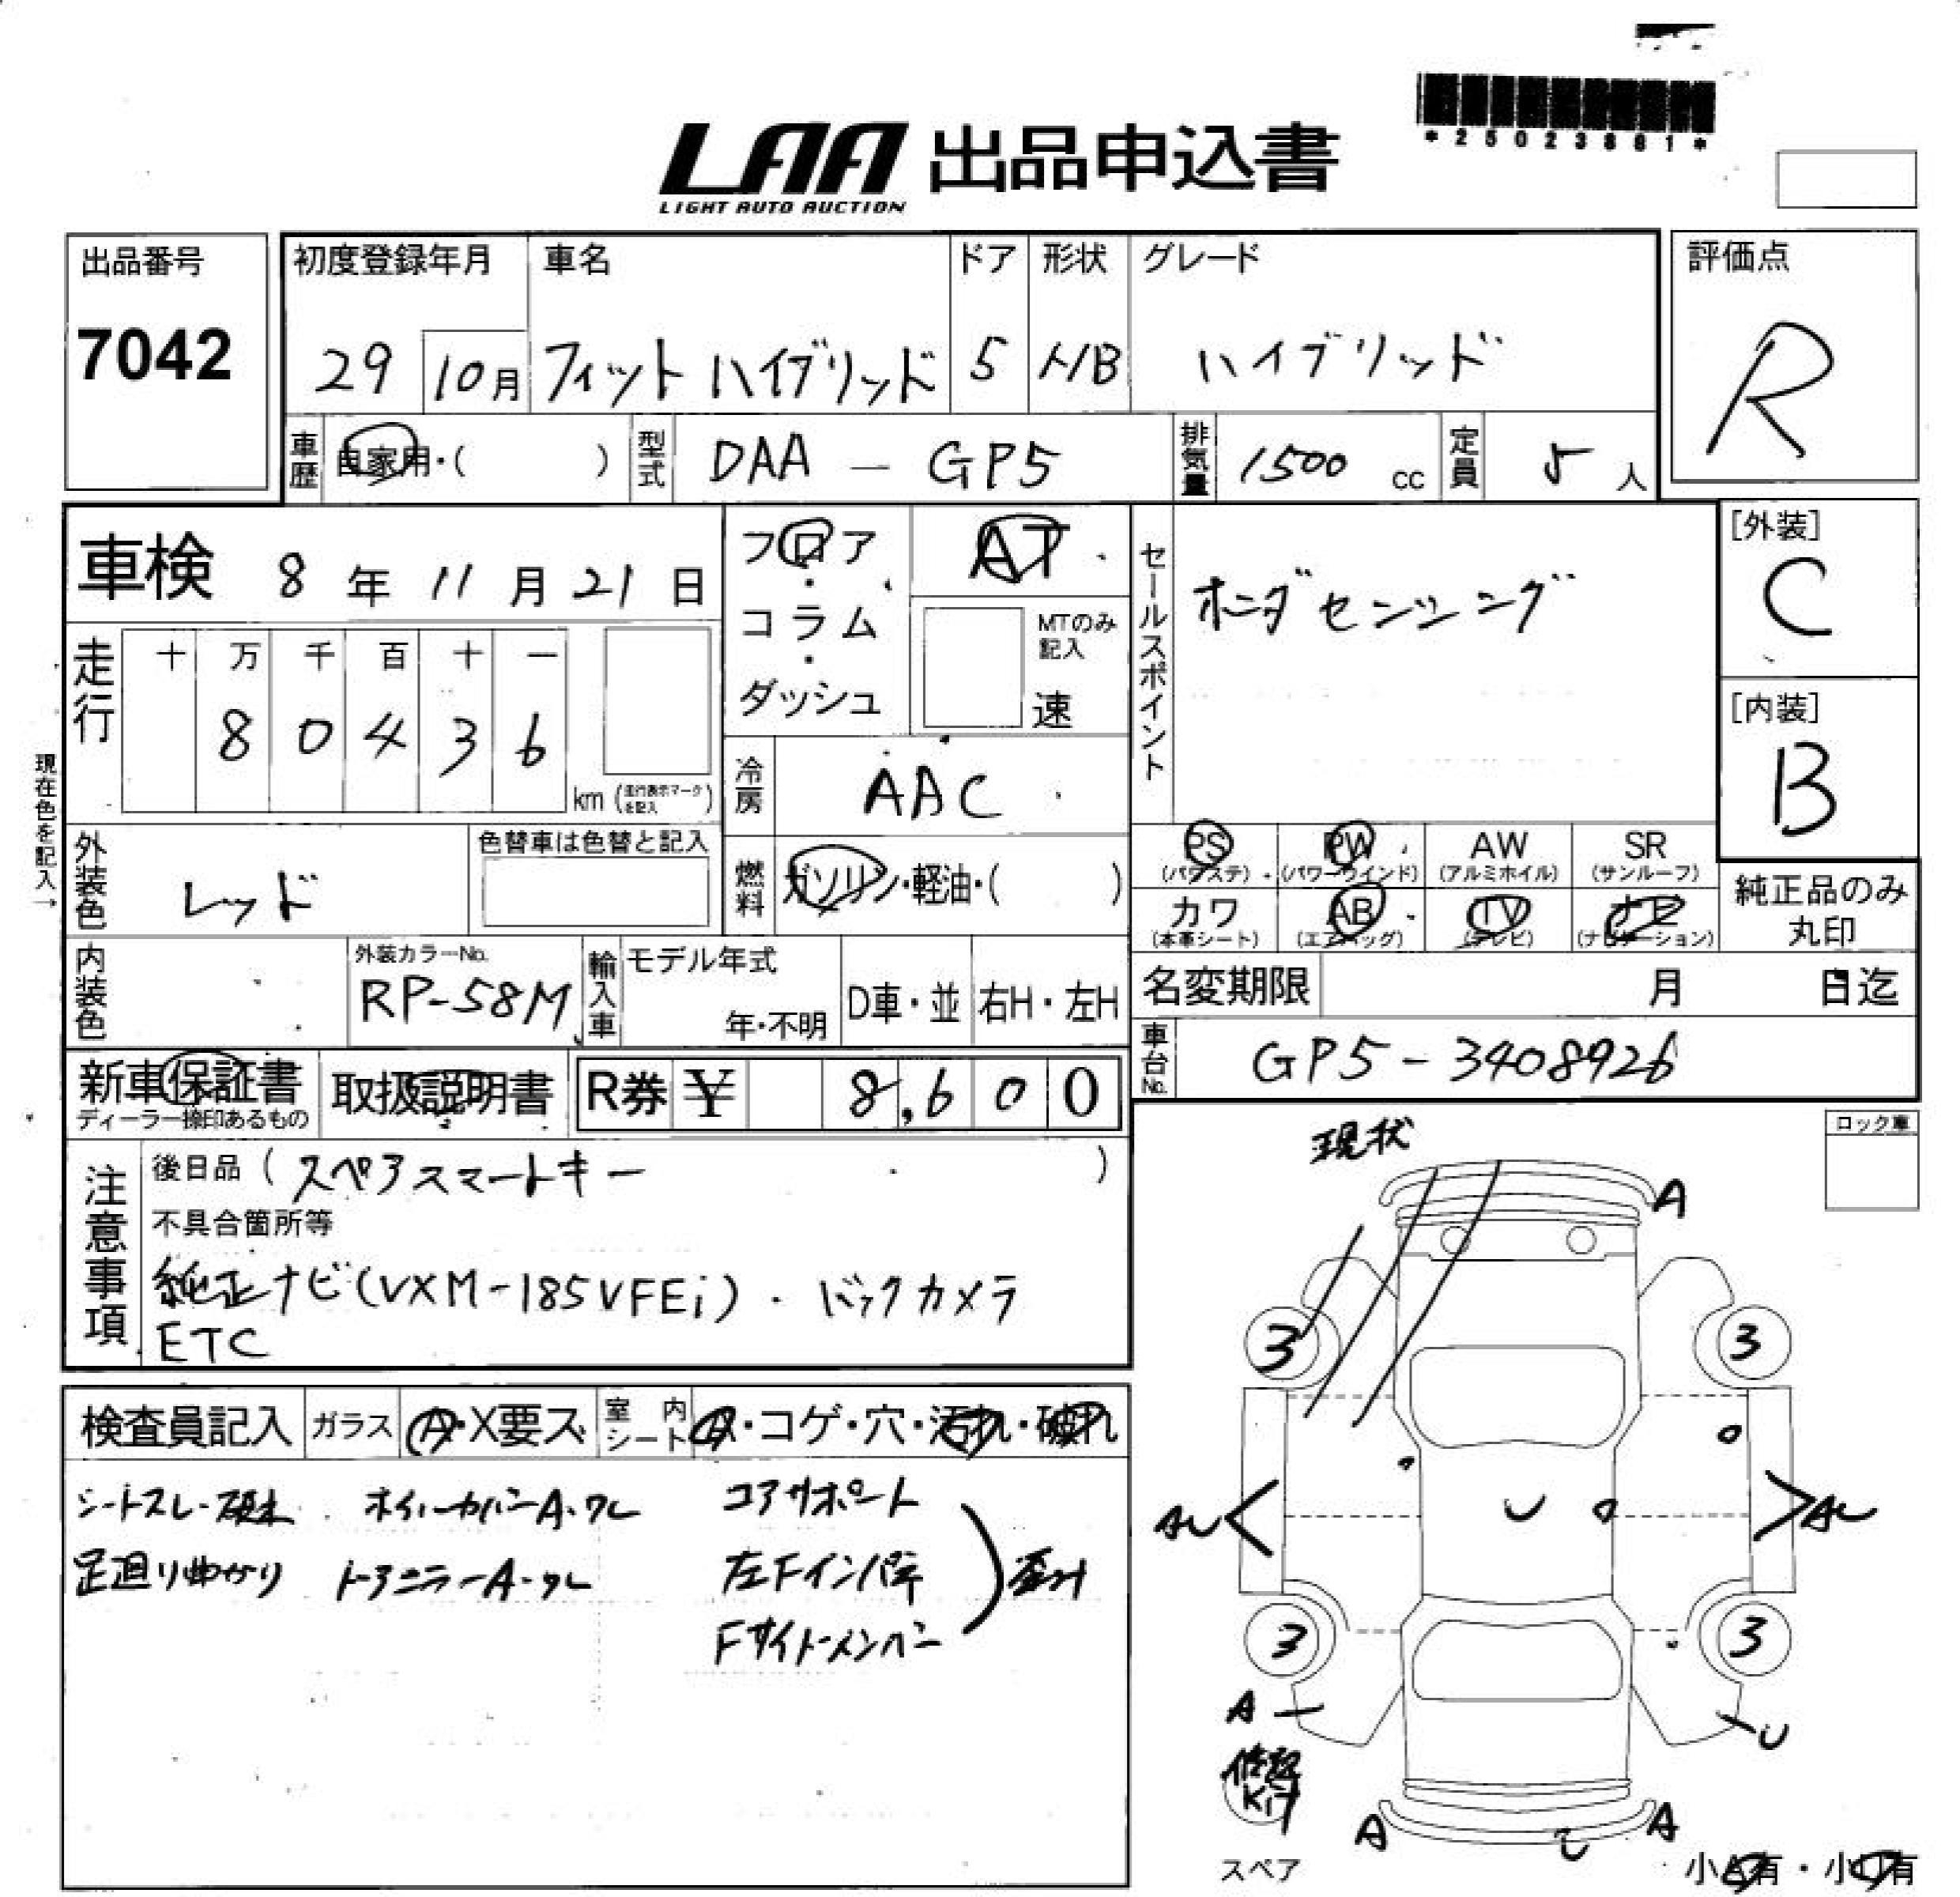 *25023861*
LAA 出品申込書
LIGHT AUTO AUCTION
出品番号
7042
初度登録年月
29 10月
車名
フィット ハイブリッド
ドア
5
形状
H/B
グレード
ハイブリッド
評価点
R
車歴 自家用・( )
型式 DAA - GP5
排気量 1500 cc
定員 5 人
車検 8 年 11 月 21 日
走行
十 万 千 百 十 一
8 0 4 3 6
km (走行表示マークを記入)
現在色を記入→
フロア・コラム・ダッシュ
AT
MTのみ記入
速
冷房 AAC
燃料 ガソリン・軽油・( )
セールスポイント
ホンダセンシング
[外装]
C
[内装]
B
外装色 レッド
色替車は色替と記入
PS (パワステ)
PW (パワーウインド)
AW (アルミホイル)
SR (サンルーフ)
カワ (本革シート)
AB (エアバッグ)
TV (テレビ)
ナビ (ナビゲーション)
純正品のみ丸印
内装色
外装カラーNo.
RP-58M
輸入車
モデル年式
年・不明
D車・並
右H・左H
名変期限 月 日迄
車台No. GP5-3408926
新車保証書
ディーラー捺印あるもの
取扱説明書
R券 ¥ 8,600
注意事項
後日品 (スペアスマートキー )
不具合箇所等
純正ナビ(VXM-185VFEi)・バックカメラ
ETC
ロック車
現状
A
3
3
AU
AU
U
3
3
A
U
修理KIT
A
U
A
スペア
小A有・小U有
検査員記入
ガラス A・X要ス
室内シート A・コゲ・穴・汚れ・破れ
シートスレ・破れ
ホイールカバーA・ワレ
コアサポート
足廻り曲がり
ドアミラーA・ワレ
左Fインパネ
歪み
Fサイドメンバー